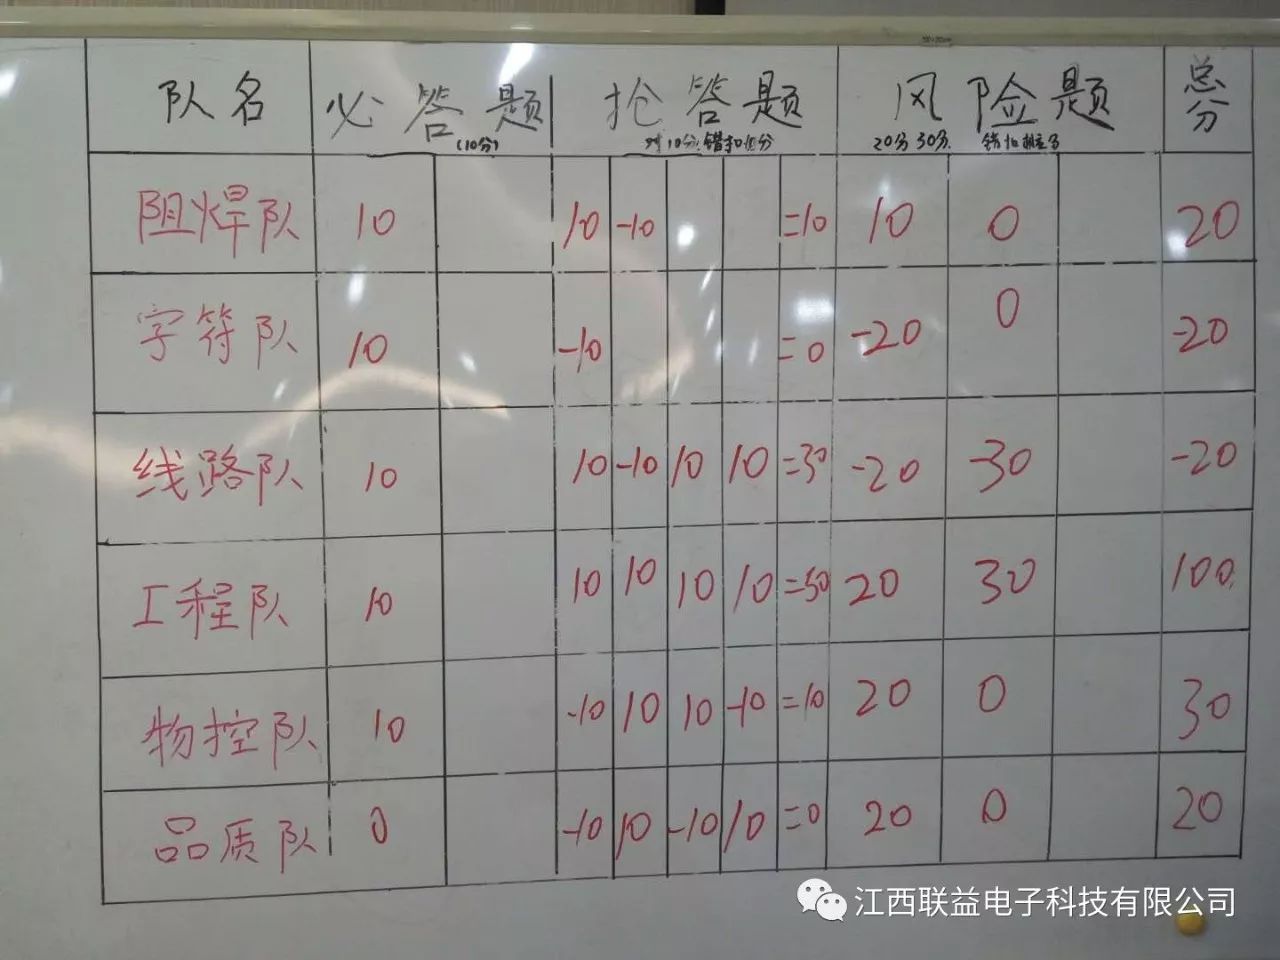 队名 必答题 抢答题 风险题 总分
(10分) 对10分 错扣10分 20分 30分
阻焊队 10 10 -10 =10 10 0 20
字符队 10 -10 =0 -20 0 -20
线路队 10 10 -10 10 10 =30 -20 -30 -20
工程队 10 10 10 10 10 =50 20 30 100
物控队 10 -10 10 10 -10 =10 20 0 30
品质队 0 -10 10 -10 10 =0 20 0 20
江西联益电子科技有限公司